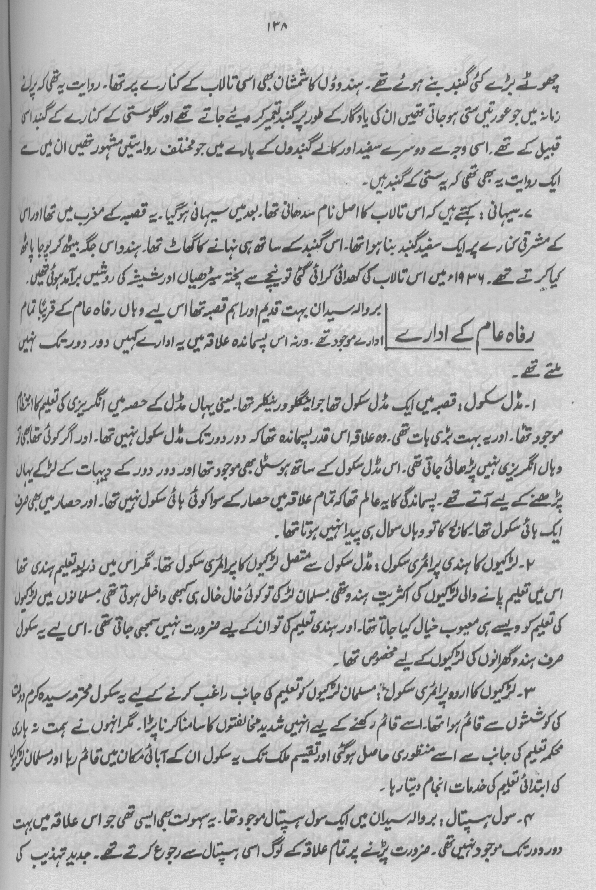 ۱۳۸
چھوٹے بڑے کئی گنبد بنے ہوئے تھے۔ ہندوؤں کا شمشان بھی اسی تالاب کے کنارے پر تھا۔ روایت یہ تھی کہ پرانے
زمانہ میں جو عورتیں ستی ہو جاتی تھیں ان کی یادگار کے طور پر گنبد تعمیر کر دیئے جاتے تھے اور گلوستی کے کنارے کے گنبد اسی
قبیل کے تھے، اسی وجہ سے دوسرے سفید اور کالے گنبدوں کے بارے میں جو مختلف روایتیں مشہور تھیں ان میں سے
ایک روایت یہ بھی تھی کہ یہ ستی کے گنبد ہیں۔
۷۔ سیہانی: کہتے ہیں کہ اس تالاب کا اصل نام سدھانی تھا۔ بعد میں سیہانی ہو گیا۔ یہ قصبہ کے مغرب میں تھا اور اس
کے مشرقی کنارے پر ایک سفید گنبد بنا ہوا تھا۔ اس گنبد کے ساتھ ہی نہانے کا گھاٹ تھا۔ ہندو اس جگہ بیٹھ کر پوجا پاٹھ
کیا کرتے تھے۔ ۱۹۳۶ء میں اس تالاب کی کھدائی کرائی گئی تو نیچے سے پختہ سیڑھیاں اور شیشہ کی روشیں برآمد ہوئی تھیں۔
رفاہ عام کے ادارے
بروالہ سیدان بہت قدیم اور اہم قصبہ تھا اس لیے وہاں رفاہ عام کے قریباً تمام
ادارے موجود تھے۔ ورنہ اس پسماندہ علاقہ میں یہ ادارے کہیں دور دور تک نہیں
ملتے تھے۔
۱۔ مڈل سکول: قصبہ میں ایک مڈل سکول تھا جو اینگلو ورنیکلر تھا۔ یعنی یہاں مڈل کے حصہ میں انگریزی کی تعلیم کا انتظام
موجود تھا۔ اور یہ بہت بڑی بات تھی۔ وہ علاقہ اس قدر پسماندہ تھا کہ دور دور تک مڈل سکول نہیں تھا۔ اور اگر کوئی تھا بھی تو
وہاں انگریزی نہیں پڑھائی جاتی تھی۔ اس مڈل سکول کے ساتھ ہوسٹل بھی موجود تھا اور دور دور کے دیہات کے لڑکے یہاں
پڑھنے کے لیے آتے تھے۔ پسماندگی کا یہ عالم تھا کہ تمام علاقہ میں حصار کے سوا کوئی ہائی سکول نہیں تھا۔ اور حصار میں بھی صرف
ایک ہائی سکول تھا۔ کالج کا تو وہاں سوال ہی پیدا نہیں ہوتا تھا۔
۲۔ لڑکیوں کا ہندی پرائمری سکول: مڈل سکول سے متصل لڑکیوں کا پرائمری سکول تھا۔ مگر اس میں ذریعہ تعلیم ہندی تھا
اس میں تعلیم پانے والی لڑکیوں کی اکثریت ہندو تھی۔ مسلمان لڑکی تو کوئی خال خال ہی کبھی داخل ہوتی تھی۔ مسلمانوں میں لڑکیوں
کی تعلیم کو ویسے ہی معیوب خیال کیا جاتا تھا۔ اور ہندی تعلیم کی تو ان کے لیے ضرورت نہیں سمجھی جاتی تھی۔ اس لیے یہ سکول
صرف ہندو گھرانوں کی لڑکیوں کے لیے مخصوص تھا۔
۳۔ لڑکیوں کا اردو پرائمری سکول: مسلمان لڑکیوں کو تعلیم کی جانب راغب کرنے کے لیے یہ سکول محترمہ سیدہ کرم دولت
کی کوششوں سے قائم ہوا تھا۔ اسے قائم رکھنے کے لیے انہیں شدید مخالفتوں کا سامنا کرنا پڑا۔ مگر انہوں نے ہمت نہ ہاری
محکمہ تعلیم کی جانب سے اسے منظوری حاصل ہو گئی اور تقسیم ملک تک یہ سکول ان کے آبائی مکان میں قائم رہا اور مسلمان لڑکیوں
کی ابتدائی تعلیم کی خدمات انجام دیتا رہا۔
۴۔ سول ہسپتال: بروالہ سیدان میں ایک سول ہسپتال موجود تھا۔ یہ سہولت بھی ایسی تھی جو اس علاقہ میں بہت
دور دور تک موجود نہیں تھی۔ ضرورت پڑنے پر تمام علاقہ کے لوگ اسی ہسپتال سے رجوع کرتے تھے۔ جدید تہذیب کی